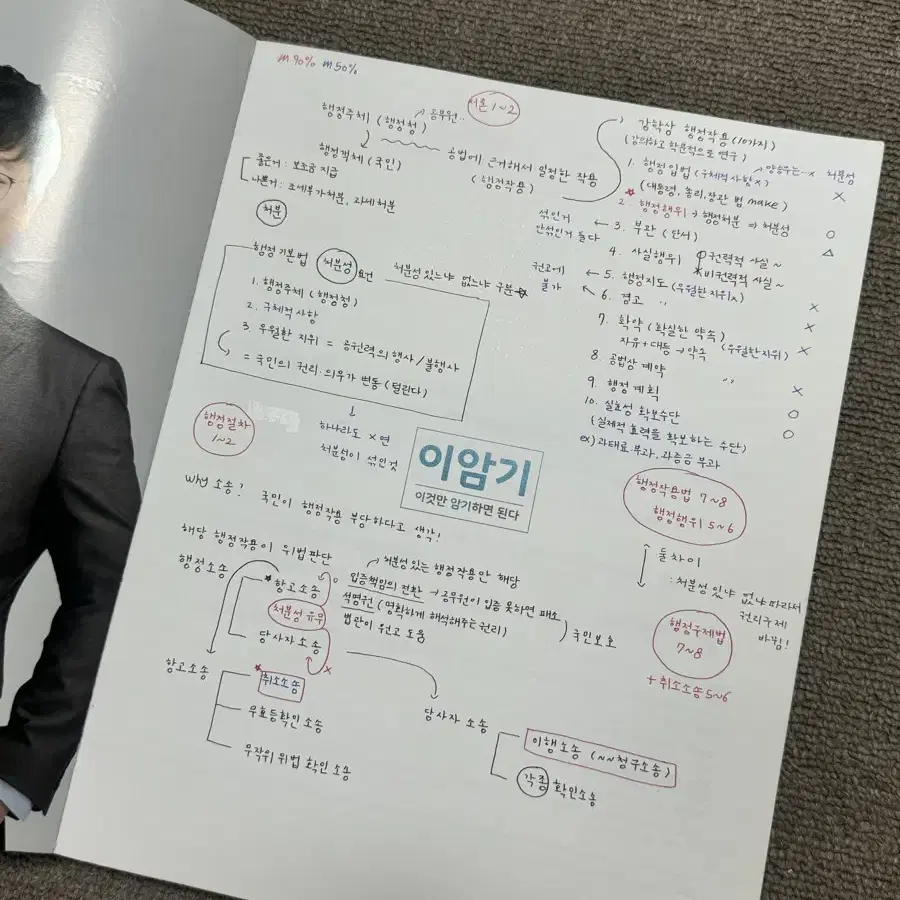 m 90% m 50%
서론 1~2
행정주체 (행정청) 공무원..
행정객체 (국민)
공법에 근거해서 일정한 작용
(행정작용)
좋은거 : 보조금 지급
나쁜거 : 조세부가처분, 과세처분
처분
행정기본법 처분성 요건
처분성 있느냐 없느냐 구분
1. 행정주체 (행정청)
2. 구체적 사항
3. 우월한 지위 = 공권력의 행사/불행사
= 국민의 권리·의무가 변동 (털린다)
하나라도 x면
처분성이 섞인것
강학상 행정작용 (10가지)
(강의하고 학문적으로 연구)
처분성
1. 행정입법 (구체적사항x) x
(대통령, 총리,장관 법 make)
2. 행정행위 → 행정처분 ⇒ 처분성 ○
섞인거
안섞인거 둘다
← 3. 부관 (단서) △
4. 사실행위 권력적 사실~
비권력적 사실~
권고에
불가
← 5. 행정지도 (우월한지위x) x
6. 경고 〃 x
7. 확약 (확실한 약속) x
자유+대등 → 약속 (우월한지위)
8. 공법상 계약 〃 x
9. 행정 계획 ○
10. 실효성 확보수단 ○
(실제적 효력을 확보하는 수단)
ex) 과태료 부과, 과증금 부과
행정절차
1~2
이암기
이것만 암기하면 된다
행정작용법 7~8
행정행위 5~6
둘차이
: 처분성 있냐 없냐 따라서
권리구제
바뀜!
행정구제법
7~8
+ 취소소송 5~6
why 소송? 국민이 행정작용 부당하다고 생각!
해당 행정작용이 위법판단
행정소송
처분성 있는 행정작용만 해당
항고소송 ○
입증책임의 전환 → 공무원이 입증 못하면 패소
석명권 (명확하게 해석해주는 권리)
법관이 원고 도움
국민보호
처분성 유무
당사자 소송 x
항고소송
취소소송
무효등확인 소송
부작위 위법 확인 소송
당사자 소송
이행소송 (~~청구소송)
각종 확인소송